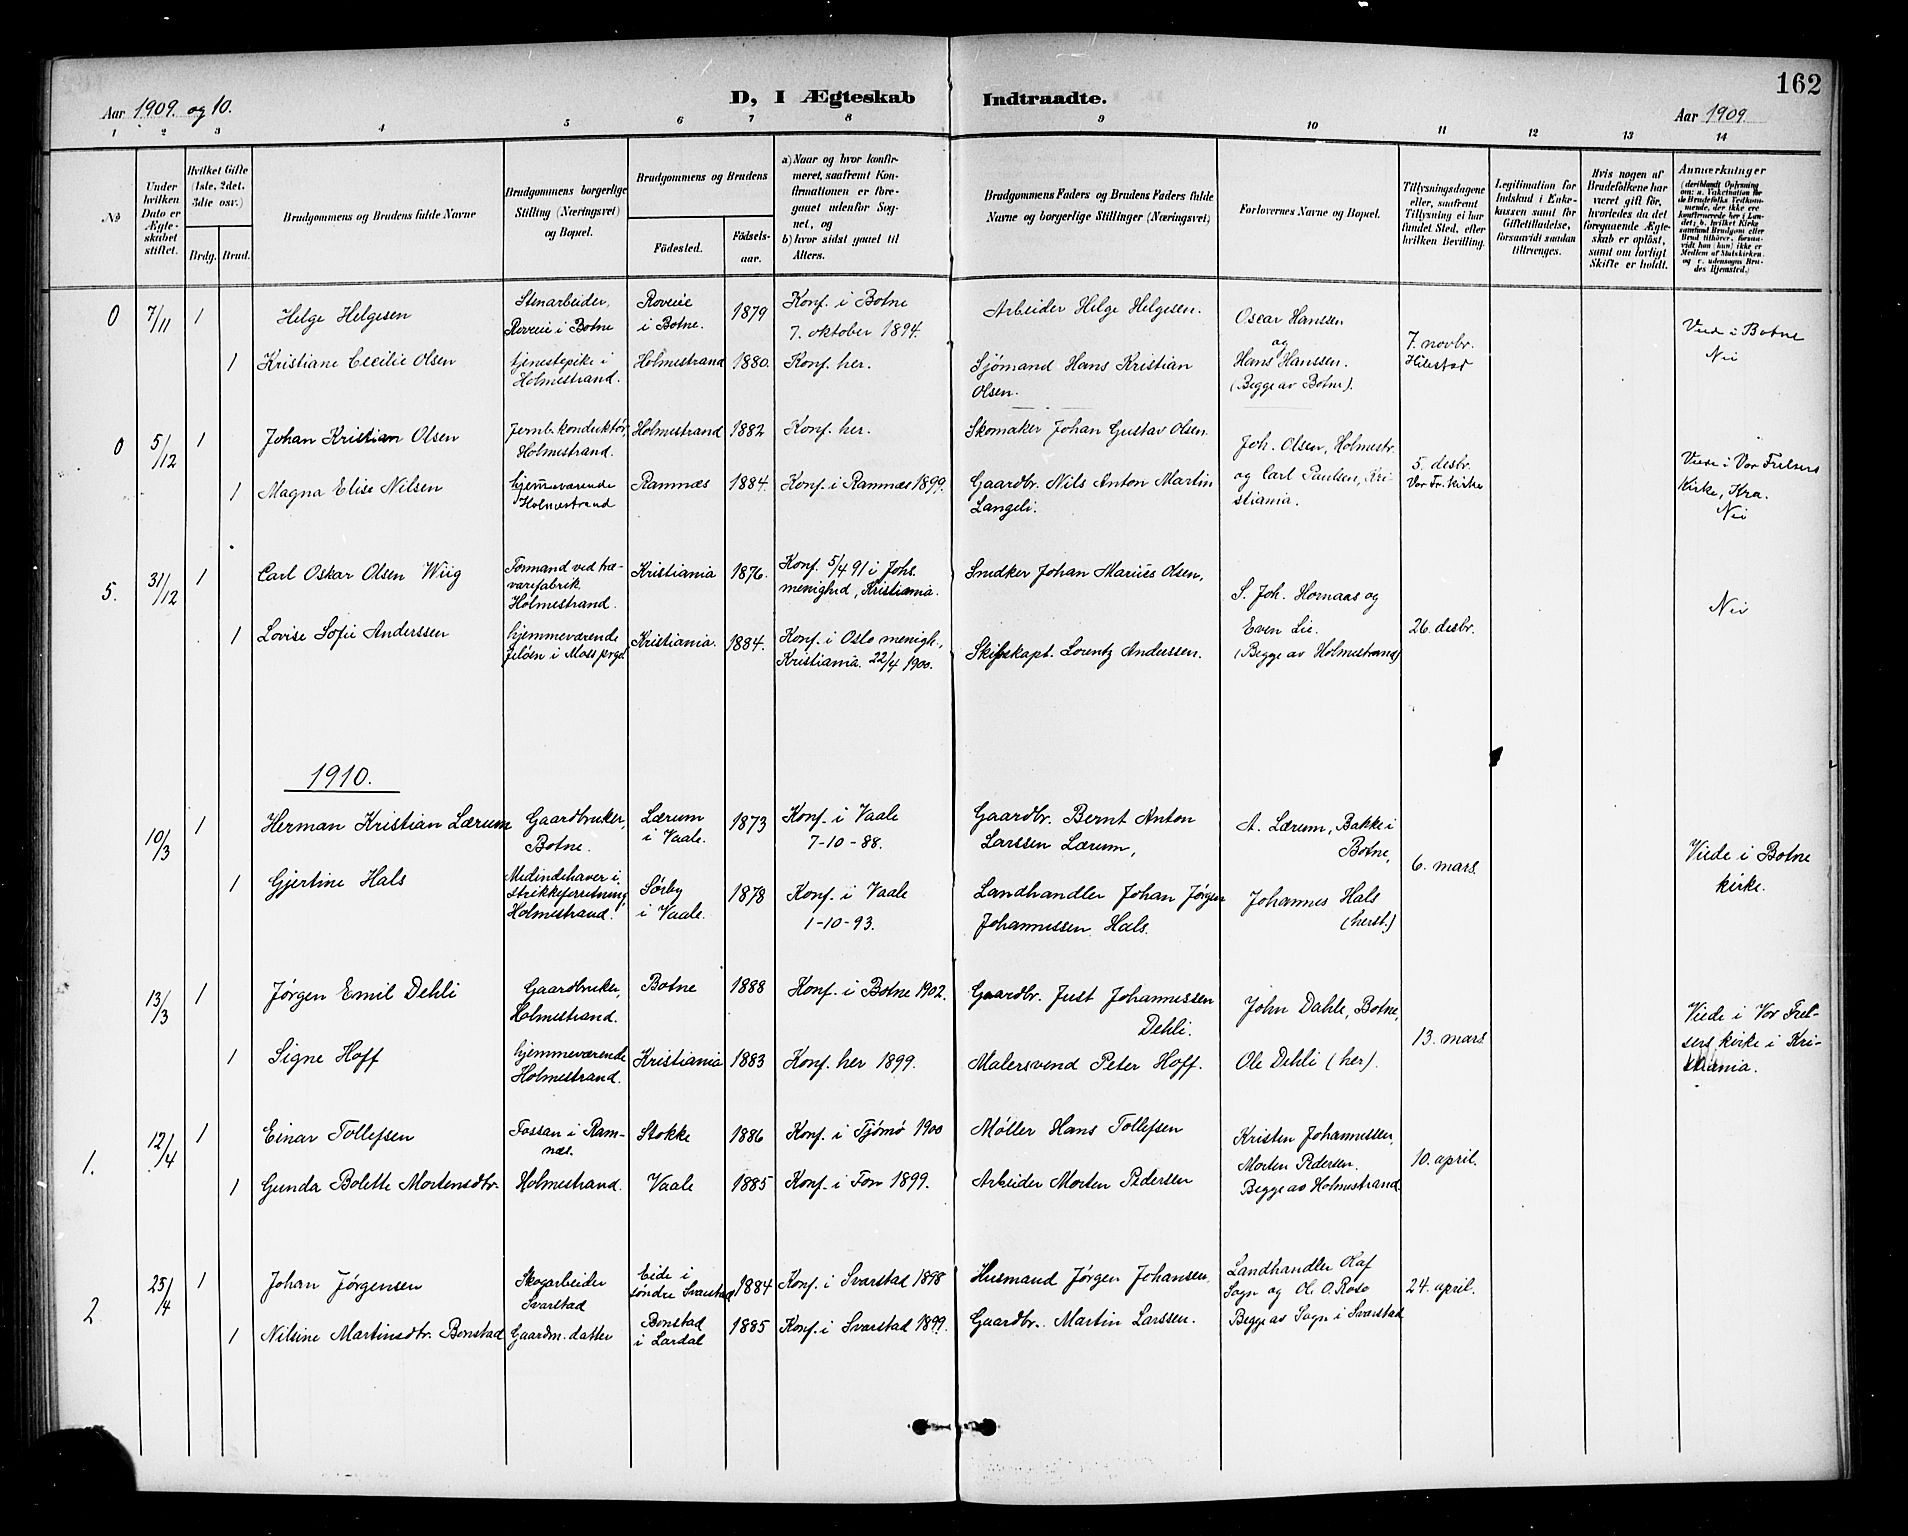 162
Aar 1909. og 10.
D, I Ægteskab Indtraadte.
Aar 1909.
1 2 3 4 5 6 7 8 9 10 11 12 13 14
No
Under hvilken Dato er Ægteskabet stiftet.
Hvilket Gifte (1ste, 2det, 3die osv.)
Brdg. Brud.
Brudgommens og Brudens fulde Navne
Brudgommens borgerlige Stilling (Næringsvei) og Bopæl.
Brudgommens og Brudens
Fødested.
Födsels-aar.
a) Naar og hvor konfirmeret, saafremt Konfirmationen er foregaaet udenfor Sognet, og
b) hvor sidst gaaet til Alters.
Brudgommens Faders og Brudens Faders fulde Navne og borgerlige Stillinger (Næringsvei)
Forlovernes Navne og Bopæl.
Tillysningsdagene eller, saafremt Tillysning ei har fundet Sted, efter hvilken Bevilling.
Legitimation for Indskud i Enkekassen samt for Giftetilladelse, forsaavidt saadan tiltrænges.
Hvis nogen af Brudefolkene har været gift før, hvorledes da det foregaaende Ægteskab er opløst, samt om lovligt Skifte er holdt.
Anmærkninger
0 7/11 1 Helge Helgesen
Stenarbeider, Roveie i Botne
Roveie i Botne.
1879
Konf. i Botne 7. oktober 1894.
Arbeider Helge Helgesen.
Oscar Hanssen og Hans Hanssen. (Begge av Botne).
7. novbr. Hillestad
Viede i Botne
Nei
1 Kristiane Cecilie Olsen
tjenestepike i Holmestrand.
Holmestrand
1880.
Konf. her.
Sjömand Hans Kristian Olsen.
0 5/12 1 Johan Kristian Olsen
Jernb. konduktör, Holmestrand.
Holmestrand
1882
Konf. her.
Skomaker Johan Gustav Olsen.
Joh. Olsen, Holmestr. og Carl Paulsen, Kristiania.
5. desbr. Vor Fr. kirke
Viede i Vor Frelsers Kirke, Kra.
Nei
1 Magna Elise Nilsen
hjemmeværende Holmestrand
Ramnæs
1884.
Konf. i Ramnæs 1899.
Gaardbr. Nils Anton Martin Langeli.
5. 31/12 1 Carl Oskar Olsen Wiig
Formand ved trævarefabrik, Holmestrand.
Kristiania
1876.
Konf. 5/4 91 i Johs. menighed, Kristiania.
Snedker Johan Marius Olsen,
S. Joh. Hornaas og Even Lie. (Begge av Holmestrand)
26. desbr.
Nei
1 Lovise Sofie Anderssen
hjemmeværende Jelöen i Moss prgd.
Kristiania.
1884.
Konf. i Oslo menigh., Kristiania 22/4 1900.
Skibskapt. Lorentz Anderssen.
1910.
10/3 1 Herman Kristian Lærum
Gaardbruker, Botne.
Lærum i Vaale.
1873
Konf. i Vaale 7-10-88.
Gaardbr. Bernt Anton Larssen Lærum,
A. Lærum, Bakke i Botne,
6. mars
Viede i Botne kirke.
1 Gjertine Hals
Medindehaver i strikkeforretning, Holmestrand.
Sörby i Vaale.
1878
Konf. i Vaale 1-10-93.
Landhandler Johan Jörgen Johannessen Hals.
Johannes Hals (herst.)
13/3 1 Jörgen Emil Dehli
Gaardbruker, Holmestrand.
Botne
1888
Konf. i Botne 1902.
Gaardbr. Just Johannessen Dehli.
John Dahle, Botne,
13. mars
Viede i Vor Frelsers kirke i Kristiania.
1 Signe Hoff
hjemmeværende Holmestrand.
Kristiania
1883
Konf. her 1899.
Malersvend Peter Hoff.
Ole Dehli (her).
1. 12/4 1 Einar Tollefsen
Fossan i Ramnæs.
Stokke
1886
Konf. i Tjömö 1900
Møller Hans Tollefsen
Kristen Johannessen, Morten Pedersen. Begge av Holmestrand
10. april.
1 Gunda Bolette Mortensdtr.
Holmestrand.
Vaale
1885
Konf. i Fon 1899.
Arbeider Morten Pedersen
2. 25/4 1 Johan Jörgensen
Skogarbeider Svarstad
Eide i söndre Svarstad
1884
Konf. i Svarstad 1898
Husmand Jörgen Johansen.
Landhandler Olaf Sogn og Ole O. Röse Begge av Sogn i Svarstad
24. april.
1 Nilsine Martinsdtr. Bonstad
Gaardm. datter
Bonstad i Lardal
1885
Konf. i Svarstad 1899.
Gaardbr. Martin Larssen.